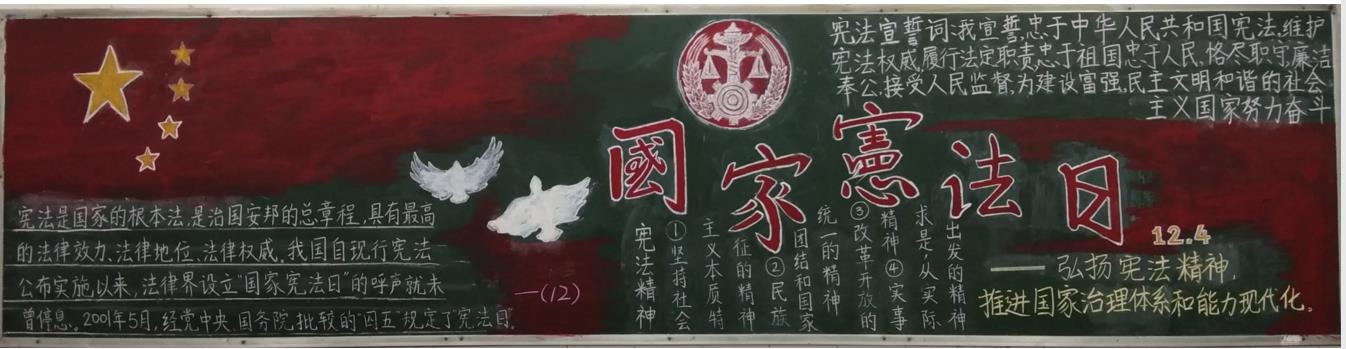 宪法宣誓词:我宣誓,忠于中华人民共和国宪法,维护
宪法权威,履行法定职责忠于祖国忠于人民,恪尽职守,廉洁
奉公,接受人民监督,为建设富强,民主文明和谐的社会
主义国家努力奋斗
國家憲法日
12.4
——弘扬宪法精神,
推进国家治理体系和能力现代化。
宪法是国家的根本法,是治国安邦的总章程,具有最高
的法律效力、法律地位、法律权威,我国自现行宪法
公布实施以来,法律界设立"国家宪法日"的呼声就未
曾停息。2001年5月,经党中央、国务院批较的"四五"规定了"宪法日"。
一(12)
宪法精神
①坚持社会
主义本质特
征的精神
②民族
团结和国家
统一的精神
③改革开放的
精神④实事
求是,从实际
出发的精神